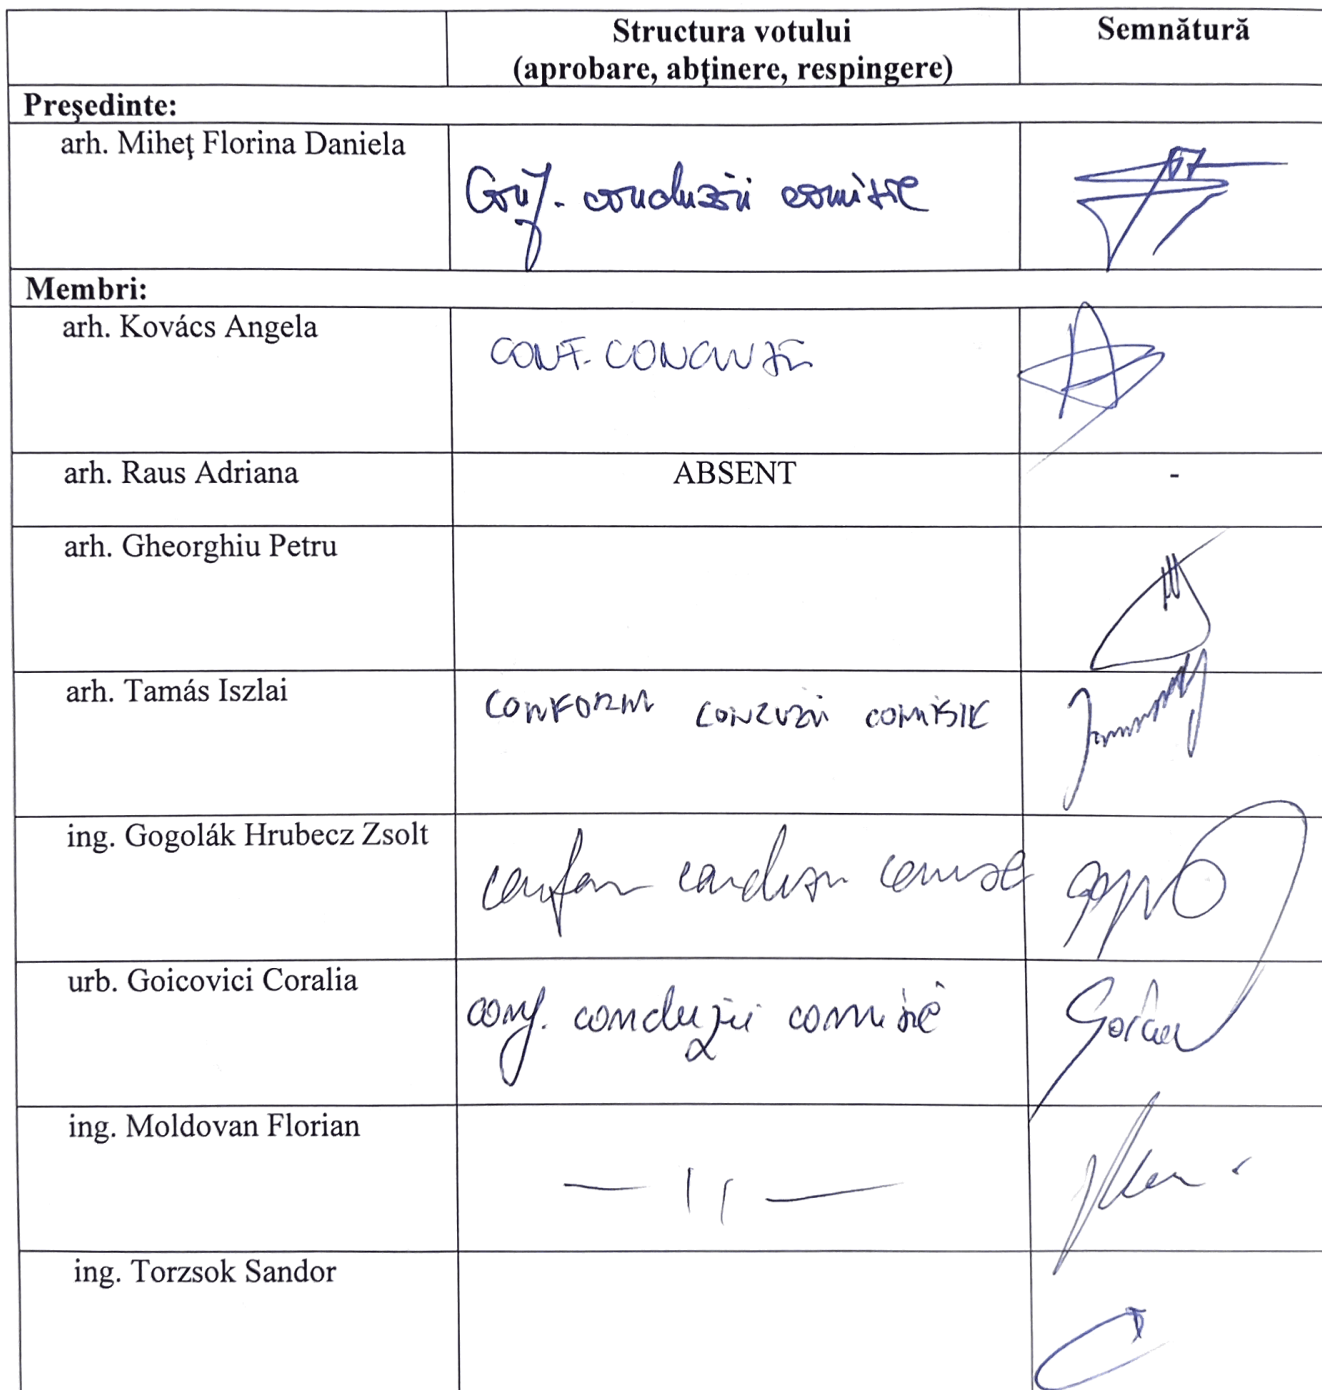 Structura votului
(aprobare, abţinere, respingere)
Semnătură
Preşedinte:
arh. Miheţ Florina Daniela
Conf. concluzii comisie
Membri:
arh. Kovács Angela
CONF. CONCLUZII
arh. Raus Adriana
ABSENT
-
arh. Gheorghiu Petru
arh. Tamás Iszlai
CONFORM CONZUZII COMISIE
ing. Gogolák Hrubecz Zsolt
urb. Goicovici Coralia
conf. concluzii comisie
ing. Moldovan Florian
— 11 —
ing. Torzsok Sandor